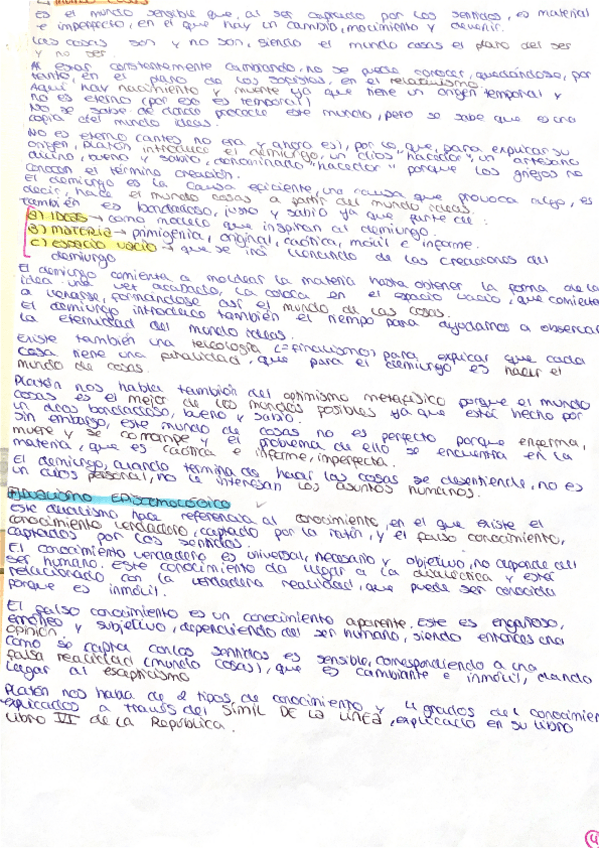 MUNDO COSAS
Es el mundo sensible que, al ser captado por los sentidos, es material
e imperfecto, en el que hay un cambio, movimiento y devenir.
Las cosas son y no son, siendo el mundo cosas el plano del ser
y no ser
Al estar constantemente cambiando, no se puede conocer, quedándose, por
tanto, en el plano de los sofistas, en el relativismo.
Aquí hay nacimiento y muerte ya que tiene un origen temporal y
no es eterno (por eso es temporal)
No se sabe de dónde procede este mundo, pero se sabe que es una
copia del mundo ideas.
No es eterno (antes no era y ahora es), por lo que, para explicar su
origen, Platón introduce el demiurgo, un dios "hacedor", un "artesano
divino, bueno y sabio, denominado "hacedor" porque los griegos no
conocen el término creación.
El demiurgo es la causa eficiente, una causa que provoca algo, es
decir, hace el mundo cosas a partir del mundo ideas.
también es bondadoso, justo y sabio ya que parte de:
a) IDEAS → como modelo que inspiran al demiurgo.
b) MATERIA → primigenia, original, caótica, móvil e informe.
c) espacio vacío → que se irá llenando de las creaciones del
demiurgo
El demiurgo comienza a moldear la materia hasta obtener la forma de la
idea una vez acabado, la coloca en el espacio vacío, que comienza
a llenarse, formándose así el mundo de las cosas.
El demiurgo introduce también el tiempo para ayudarnos a observar
la eternidad del mundo ideas.
Existe también una teleología (=finalismo) para explicar que cada
cosa tiene una finalidad, que para el demiurgo es hacer el
mundo de cosas.
Platón nos habla también del optimismo metafísico porque el mundo
cosas es el mejor de los mundos posibles ya que está hecho por
un dios bondadoso, bueno y sabio.
Sin embargo, este mundo de cosas no es perfecto porque enferma,
muere y se corrompe y el problema de ello se encuentra en la
materia, que es caótica e informe, imperfecta.
El demiurgo, cuando termina de hacer las cosas se desentiende, no es
un dios personal, no le interesan los asuntos humanos.
DUALISMO EPISTEMOLÓGICO
Este dualismo hace referencia al conocimiento, en el que existe el
conocimiento verdadero, captado por la razón, y el falso conocimiento,
captados por los sentidos.
El conocimiento verdadero es universal, necesario y objetivo, no depende del
ser humano. este conocimiento da lugar a la dialéctica y está
relacionado con la verdadera realidad, que puede ser conocida
porque es inmóvil.
El falso conocimiento es un conocimiento aparente. Este es engañoso,
erróneo y subjetivo, dependiendo del ser humano, siendo entonces una
opinión.
Como se capta con los sentidos es sensible, correspondiendo a una
falsa realidad (mundo cosas), que es cambiante e inmóvil, dando
lugar al escepticismo
Platón nos habla de 2 tipos de conocimiento y 4 grados del conocimien
explicados a través del SÍMIL DE LA LÍNEA, explicado en su libro
Libro VI de La República.
4